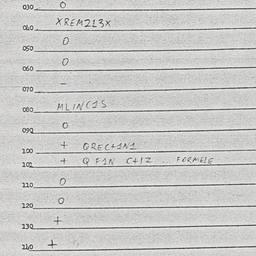 030 O
040 XREM213X
050 O
060 O
070 -
080 MLINC1S
090 O
100 + QREC+1N1
101 + Q F1N C+12 .. FORMELE
110 O
120 O
130 +
140 +